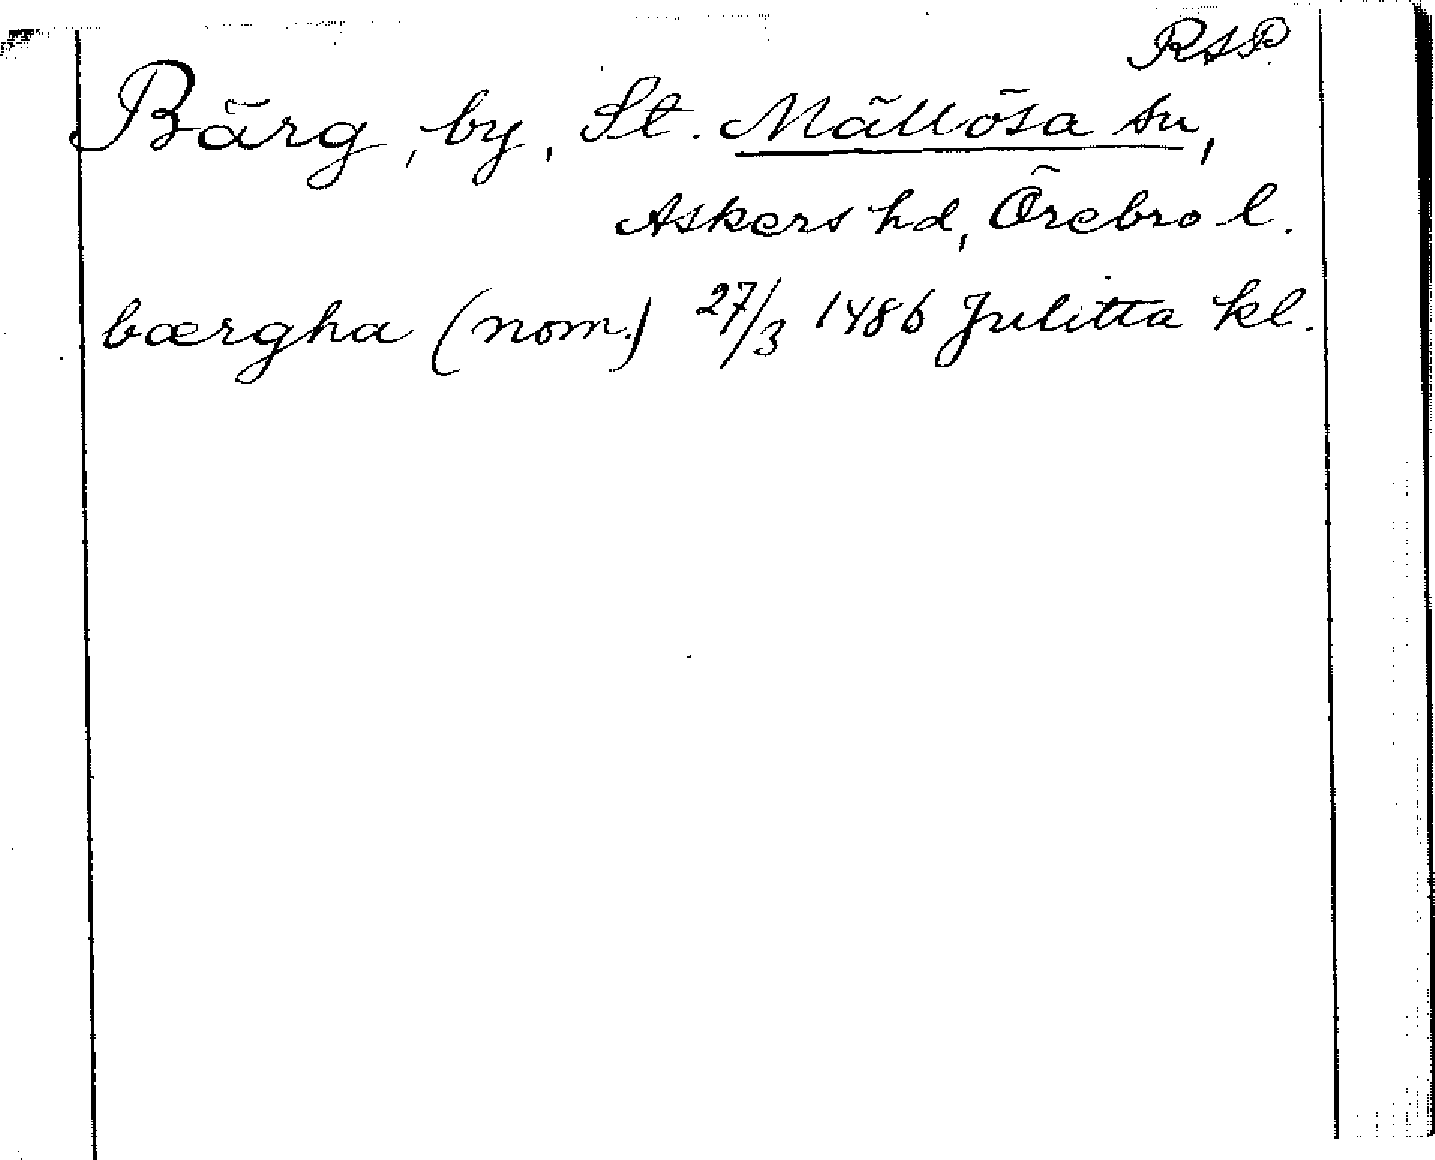 RAP.
Bärg, by, St. Mällösa sn,
Askers hd, Örebro l.
bærgha (nom.) 27/3 1486 Julitta kl.